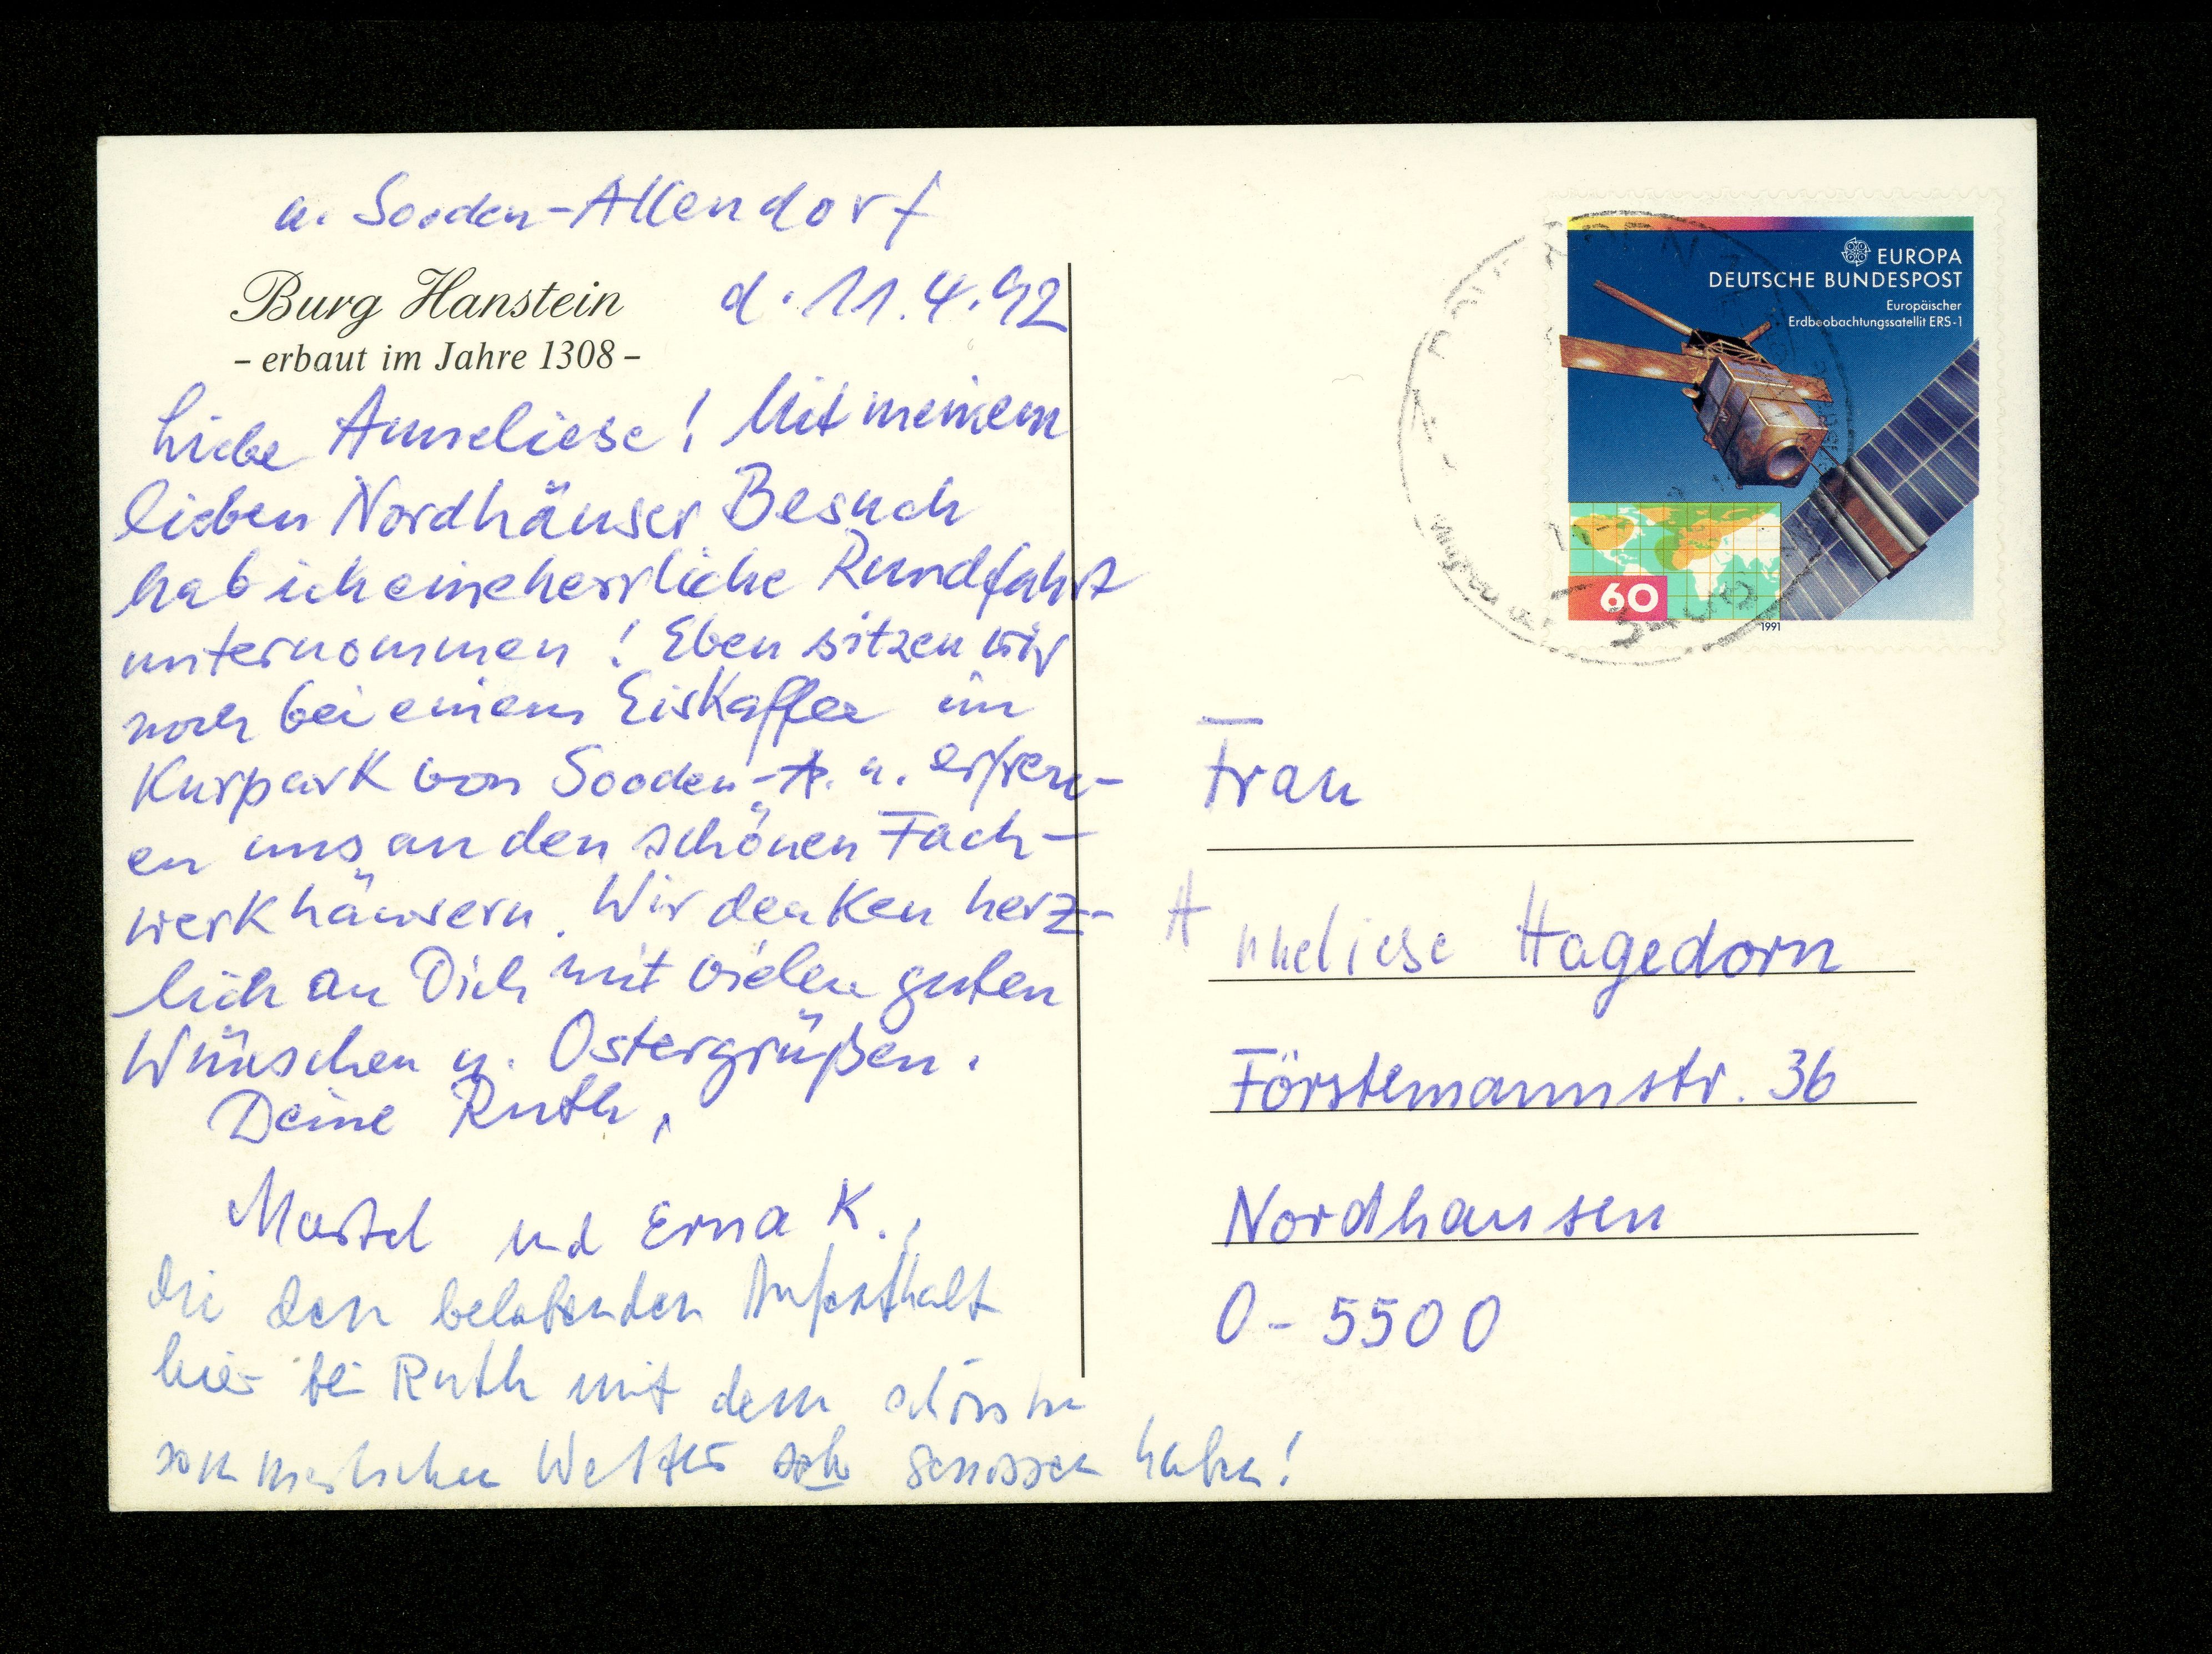 u. Sooden-Allendorf
Burg Hanstein
d. 11.4.92
– erbaut im Jahre 1308 –
Liebe Anneliese! Mit meinem
lieben Nordhäuser Besuch
hab ich eine herrliche Rundfahrt
unternommen! Eben sitzen wir
noch bei einem Eiskaffee im
Kurpark von Sooden-A. u. erfreu-
en uns an den schönen Fach-
werkhäusern. Wir denken herz-
lich an Dich mit vielen guten
Wünschen u. Ostergrüßen.
Deine Ruth,
Martel und Erna K.,
die den belebenden Aufenthalt
hier bei Ruth mit dem schönsten
sommerlichen Wetter sehr genossen haben!
EUROPA
DEUTSCHE BUNDESPOST
Europäischer
Erdbeobachtungssatellit ERS-1
60
1991
Frau
Anneliese Hagedorn
Förstemannstr. 36
Nordhausen
O-5500